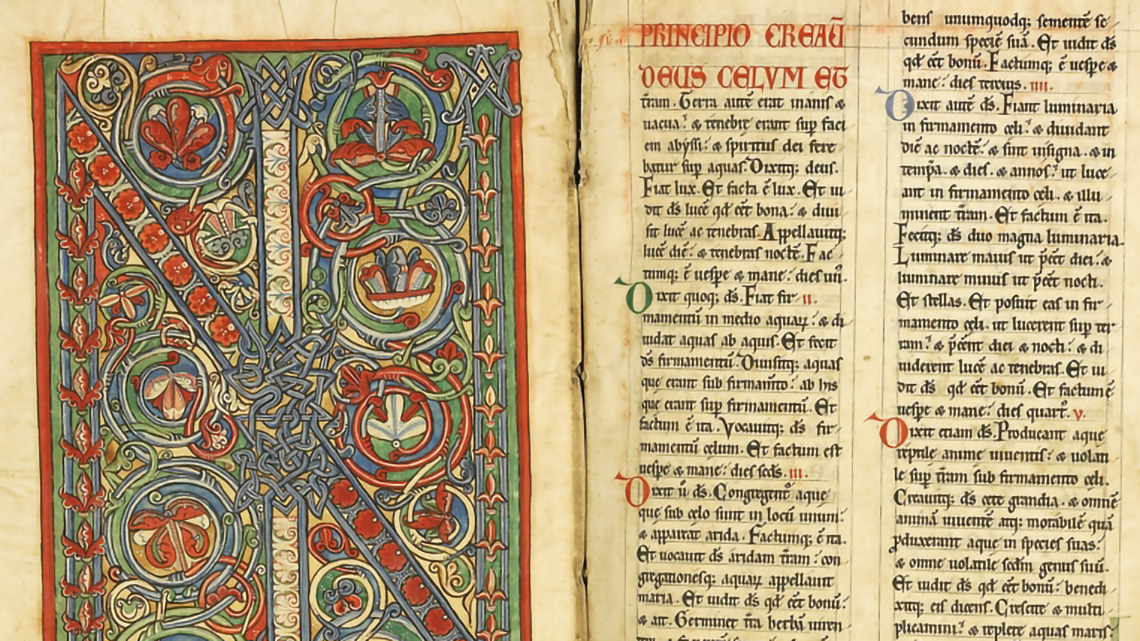 PRINCIPIO CREAŪ
DEUS CELVM ET
t̄ram. Terra aut̄e erat inanis ⁊
uacua ⁊ tenebrę erant sup faci
em abyssi ⁊ spiritus dei fere
batur sup aquas. Dixitq; deus.
Fiat lux. Et facta ē lux. Et ui
dit d̄s lucē qd̄ eēt bona ⁊ diui
sit lucē ac tenebras. Appellauitq;
lucē diē ⁊ tenebras noctē. Fac
tumq; ē uespe ⁊ mane dies un̄.
Dixit quoq; d̄s. Fiat fir ii.
mamentū in medio aquaꝝ ⁊ di
uidat aquas ab aquis. Et fecit
d̄s firmamentū. Diuisitq; aquas
que erant sub firmam̄to ab his
que erant sup firmamentū. Et
factum ē ita. Vocauitq; d̄s fir
mamentū celum. Et factum est
uespe ⁊ mane dies sc̄ds. iii.
Dixit ū d̄s. Congregent᷑ aque
que sub celo sunt in locū unum
⁊ appareat arida. Factumq; ē ita.
Et uocauit d̄s aridam t̄ram con
gregationesq; aquaꝝ appellauit
maria. Et uidit d̄s qd̄ eēt bonū
⁊ ait. Germinet t̄ra herbā uiren
bens unumquodq; sementē se
cundum speciē suā. Et uidit d̄s
qd̄ eēt bonū. Factumq; ē uespe ⁊
mane dies tercius. iiii.
Dixit autē d̄s. Fiant luminaria
in firmamento cęli ⁊ diuidant
diē ac noctē ⁊ sint in signa ⁊ in
tempa ⁊ dies ⁊ annos ut luce
ant in firmamento celi ⁊ illu
minent t̄ram. Et factum ē ita.
Fecitq; d̄s duo magna luminaria.
Luminare maius ut p̄eēt diei ⁊
luminare minus ut p̄eēt nocti.
Et stellas. Et posuit eas in fir
mamento cęli ut lucerent sup ter
ram ⁊ p̄eent diei ⁊ nocti ⁊ di
uiderent lucē ac tenebras. Et ui
dit d̄s qd̄ eēt bonū. Et factum ē
uespe ⁊ mane dies quart᷑. v.
Dixit etiam d̄s. Producant aque
reptile anime uiuentis ⁊ uolati
le sup t̄ram sub firmamento cęli.
Creauitq; d̄s cete grandia ⁊ omnē
animā uiuentē atq; motabilē quā
ꝓduxerant aque in species suas
⁊ omne uolatile scd̄m genus suū.
Et uidit d̄s qd̄ eēt bonū bened
xitq; eis dicens. Crescite ⁊ multi
plicamini ⁊ replete aquas maris